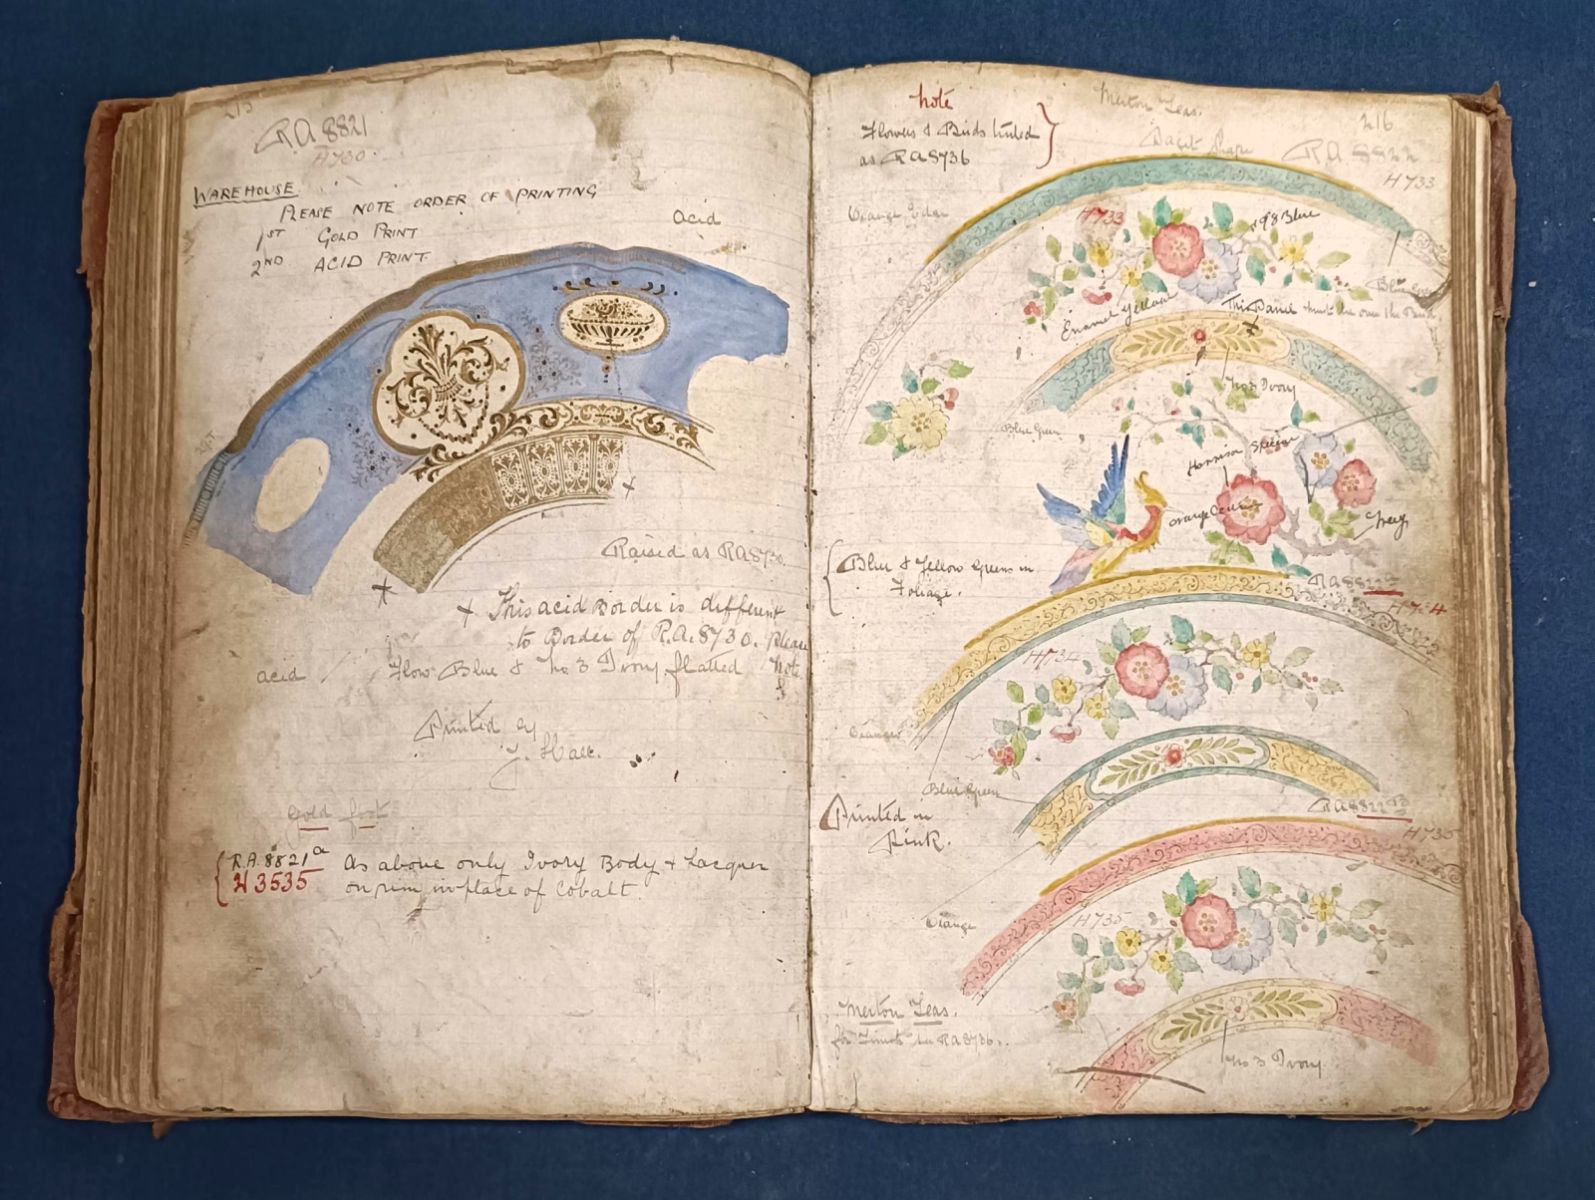 215
RA 8821
H730.
WAREHOUSE
PLEASE NOTE ORDER OF PRINTING
1ST GOLD PRINT
2ND ACID PRINT.
acid
Raised as RA8730
+ This acid Border is different
to Border of R.A. 8730. Please
note
acid Flow Blue & No 3 Ivory flatted
Printed by
J. Hall.
Gold foot
R.A. 8821a As above only Ivory Body & Lacquer
H3535 on rim in place of Cobalt.
Note
Flowers & Birds tinted
as RA 8736
Merton Teas.
216
Shape
RA 8822
H733
Orange Edge
H733
498 Blue
Blue Green
Enamel Yellow
This Panel must be over the Band
No 3 Ivory
Blue Green
Harrison
Orange
Grey
Blue & Yellow Greens in
Foliage.
RA8822a
H734
H734
Orange
Blue Green
RA8822B
H735
Printed in
Pink.
H735
Orange
Merton Teas.
for Tints see RA8736.
No 3 Ivory